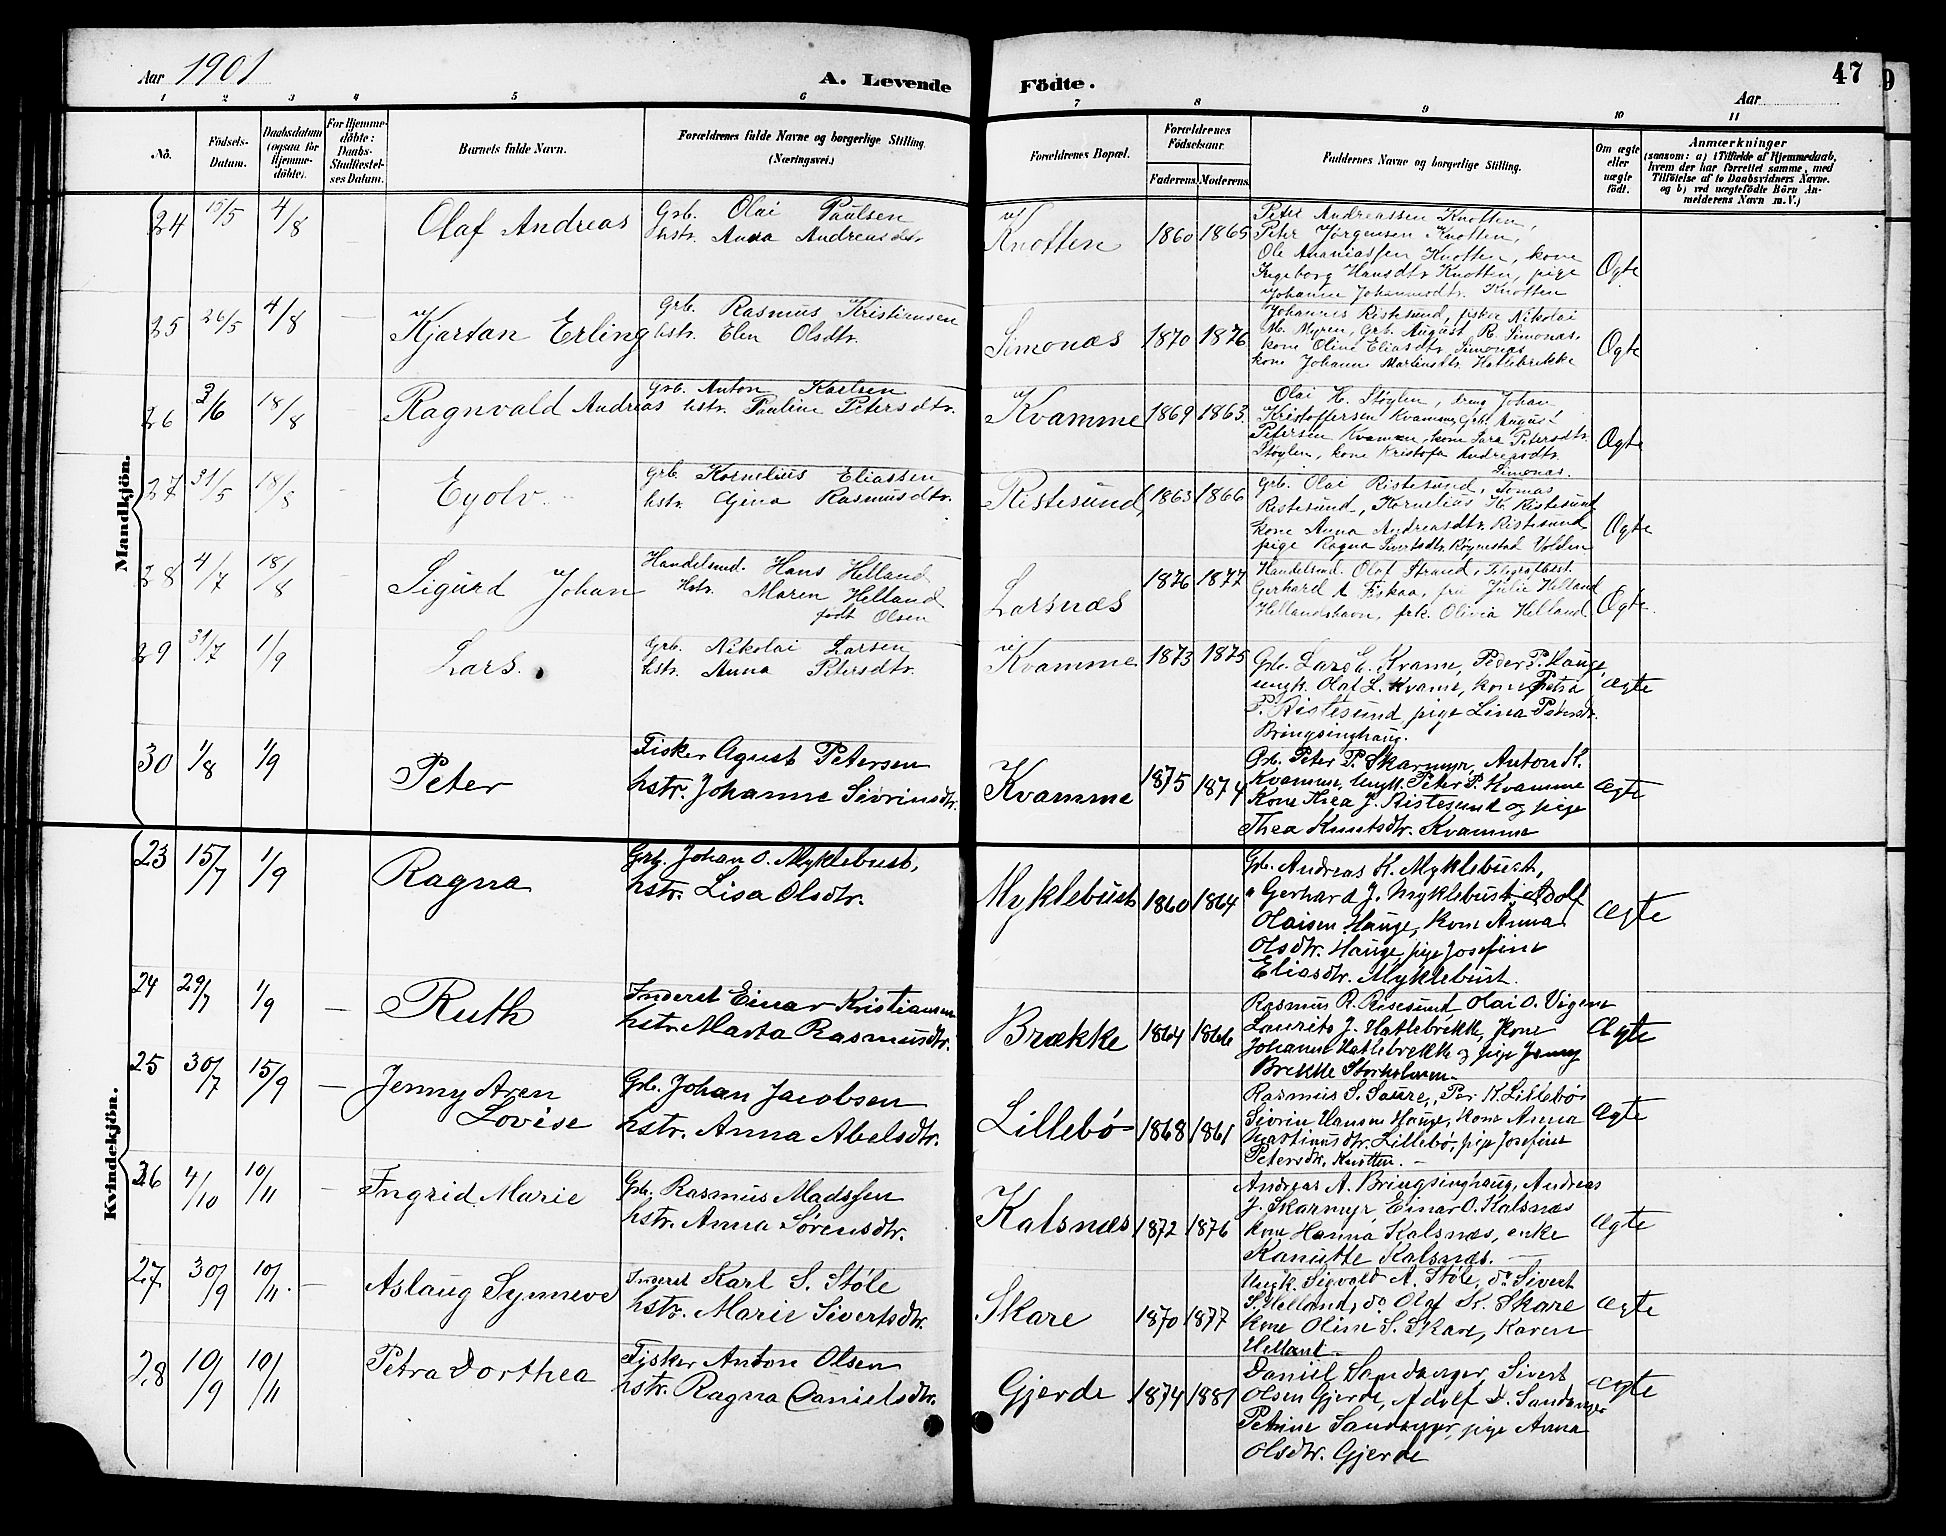 Aar 1901
A. Levende
Födte.
47
Aar
1 2 3 4 5 6 7 8 9 10 11
No.
Födsels-
Datum.
Daabsdatum
(ogsaa for
Hjemme-
döbte).
For Hjemme-
döbte:
Daabs-
Stadfæstel-
ses Datum.
Barnets fulde Navn.
Forældrenes fulde Navne og borgerlige Stilling.
(Næringsvei.)
Forældrenes Bopæl.
Forældrenes
Födselsaar.
Faderens. Moderens.
Faddernes Navne og borgerlige Stilling.
Om ægte
eller
uægte
födt.
Anmærkninger
(saasom: a) i Tilfælde af Hjemmedaab,
hvem der har forrettet samme, med
Tilföielse af to Daabsvidners Navne,
og b) ved uægtefödte Börn An-
melderens Navn m.V.)
Mandkjön.
24 15/5 4/8 Olaf Andreas
Grb. Olai Paulsen
hstr. Anna Andreasdtr
Knotten 1860 1865
Peter Andreassen Knotten,
Peter Jørgensen Knotten,
Ole Ananiassen Knotten, kone
Ingeborg Hansdtr Knotten, pige
Johanne Johannesdtr. Knotten
Ægte
25 26/5 4/8 — Kjartan Erling
Grb. Rasmus Kristiansen
hstr. Elen Olsdtr.
Simonæs 1870 1876
Johannes Ristesund, fisker Nikolai
M. Myren, Grb. August R. Simonæs,
kone Oline Eliasdtr. Simonæs
kone Johanne Martinsdtr. Hatlebrekke
Ægte
26 2/6 18/8 — Ragnvald Andreas
Grb. Anton Karlsen
hstr. Pauline Petersdtr.
Kvamme 1869 1863.
Olai H. Støylen, dreng Johan
Kristoffersen Kvamme, Grb. August
Petersen Kvamme, kone Sara Petersdtr.
Støylen, kone Kristofa Andreasdtr.
Simonæs.
Ægte
27 31/5 18/8 — Eyolv.
Grb. Kornelius Eliassen
hstr. Gina Rasmusdtr.
Ristesund, 1863 1866
Grb. Olai Ristesund, Tomas
Ristesund, Kornelius K. Ristesund
kone Anna Andreasdtr. Ristesund
pige Ragna Sivertsdtr. Røynestad Volden
Ægte
28 4/7 18/8 — Sigurd Johan
Handelsmd. Hans Helland
Hstr. Maren Helland
født Olsen
Larsnæs 1876 1877
Handelsmd. Olaf Strand, Telegrafbest.
Gerhard A Fiskaa, fru Julie Helland
Hellandshavn, frk. Olivia Helland.
Ægte.
29 31/7 1/9 Lars.
Grb. Nikolai Larsen
hstr. Anna Petersdtr.
Kvamme 1873 1875
Grb. Lars L. Kvame, Peder P. Hauge,
ungk. Olai L. Kvame, kone Petra
P. Ristesund, pige Lina Petersdtr.
Bringsinghaug.
ægte
30 1/8 1/9 Peter
Fisker Agust Petersen
hstr. Johanne Sivrinsdtr.
Kvamme 1875 1874
Grb. Peter P. Skarmyr, Anton K.
Kvamme, Ungk. Peter P. Kvamme
Kone Thea J. Ristesund og pige
Thea Knutsdtr. Kvamme
ægte
Kvindekjön.
23 15/7 1/9 Ragna
Grb. Johan O. Myklebust,
hstr. Lisa Olsdtr.
Myklebust 1860 1864
Grb. Andreas K. Myklebust,
" Gerhard J. Myklebust, Adolf
Olaisen Hauge, kone Anna
Olsdtr. Hauge, pige Josefine
Eliasdtr. Myklebust.
ægte
24 29/7 1/9 — Ruth
Inderst Einar Kristiansen
hstr. Marta Rasmusdtr.
Brække 1864 1866
Rasmus R. Risesund Olai O. Vigene
Laurits J. Hatlebrekk, Kone
Johanne Hatlebrekke og pige Jenny
Brekke Storholmen.
Ægte
25 30/7 15/9 — Jenny Aren
Lovise
Grb. Johan Jacobsen
hstr. Anna Abelsdtr.
Lillebø 1868 1861
Rasmus S. Saure, Per K. Lillebø
Sivrin Hansen Hauge, Kone Anna
Bastiansdtr. Lillebø, pige Josefine
Petersdtr. Knotten. —
Ægte
26 4/10 10/11 — Ingrid Marie
Grb. Rasmus Madssen
hstr. Anna Sørensdtr.
Kalsnæs 1872 1876
Andreas A. Bringsinghaug, Andreas
J. Skarmyr, Einar O. Kalsnæs
kone Hanna Kalsnæs, enke
Kanutte Kalsnæs. —
ægte
27. 30/9 10/11. — Aslaug Synneve
Inderst Karl S. Støle
hstr. Marie Sivertsdtr.
Skare 1870 1877
Ungk. Sigvald A. Støle, do Sivert
S. Helland, do Olaf K. Skare
kone Oline S. Skare, Karen
Helland —
ægte
28 10/9 10/11 Petra Dorthea
Fisker Anton Olsen
hstr. Ragna Danielsdtr.
Gjerde 1874 1881
Daniel Sandanger, Sivert
Olsen Gjerde, Adolf D. Sandanger
Petrine Sandanger, pige Anna
Olsdtr. Gjerde
ægte